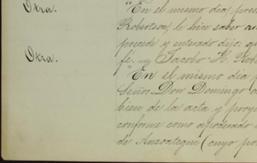 Otra. "En el mismo dia pres
Robertson, le hice saber a
precede y enterado dijo: q
fé. Jacobo A. Rob
Otra. "En el mismo dia p
Señor Don Domingo
bien de las acta, y proy
conforme como apoderado
de Anzoategui (cuyo po